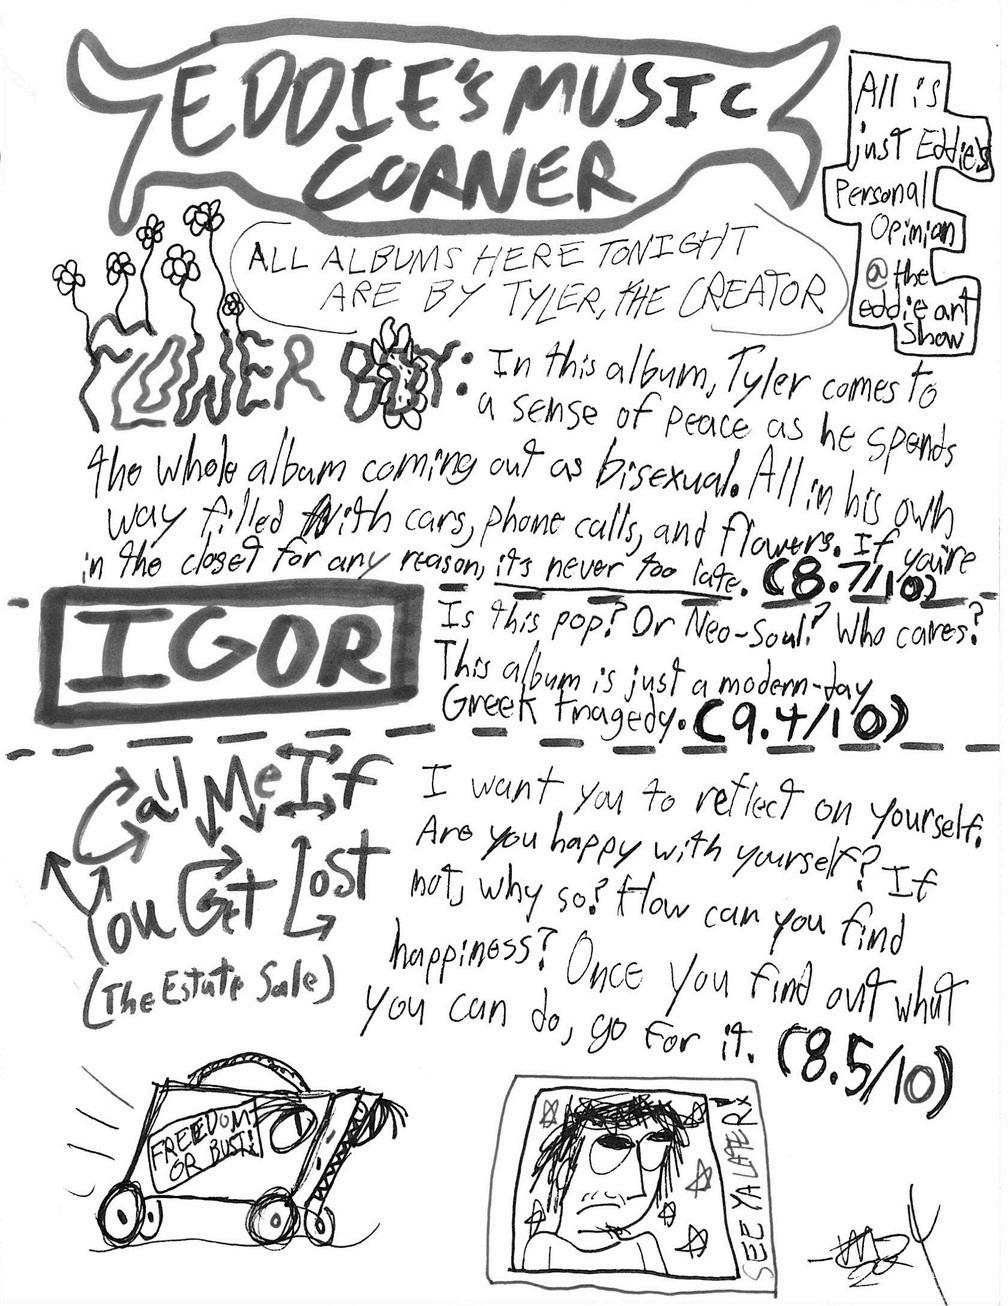 EDDIE'S MUSIC
CORNER
All is
just Eddie's
Personal
Opinion
@ the
eddie art
Show
ALL ALBUMS HERE TONIGHT
ARE BY TYLER, THE CREATOR
FLOWER BOY:
In this album, Tyler comes to
a sense of peace as he spends
the whole album coming out as bisexual. All in his own
way filled with cars, phone calls, and flowers. If you're
in the closet for any reason, it's never too late. (8.7/10)
IGOR
Is this pop? Or Neo-Soul? Who cares?
This album is just a modern-day
Greek tragedy. (9.4/10)
Call Me If
You Get Lost
(The Estate Sale)
I want you to reflect on yourself.
Are you happy with yourself? If
not, why so? How can you find
happiness? Once you find out what
you can do, go for it. (8.5/10)
FREEDOM
OR BUST!
SEE YA LATER!